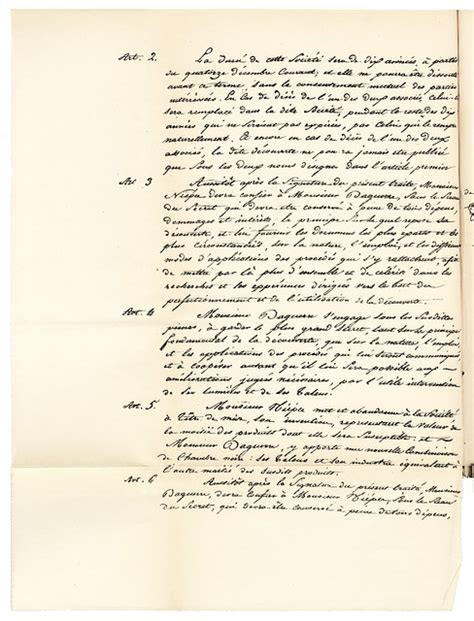 Art. 2. La Durée de cette Société sera de dix années, à partir
du quatorze décembre Courant; et elle ne pourra être dissoute
avant ce terme, sans le consentement mutuel des parties
intéressées. En Cas de décès de l'un des deux associés, Celui-ci
sera remplacé dans la dite Société, pendant le reste des dix
années qui ne seraient pas expirées, par Celui qui le
naturellement. Et encore en cas de décès de l'un des deux
associés, la dite découverte ne pourra jamais être publiée
que sous les deux noms désignés dans l'article premier
Art 3 Aussitôt après la Signature du présent traité, Monsieur
Niépce devra confier à Monsieur Daguerre, sous le Sceau
du Secret qui devra être conservé à peine de tous dépens,
dommages et intérêts, le principe sur lequel repose sa
découverte, et lui fournir les documens les plus exacts et les
plus circonstanciés, sur la nature, l'emploi, et les différens
modes d'applications des procédés qui s'y rattachent, afin
de mettre par là plus d'ensemble et de célérité dans les
recherches et les expériences dirigées vers le but du
perfectionnement et de l'utilisation de la découverte.
Art. 4 Monsieur Daguerre s'engage sous les Susdites
peines, à garder le plus grand Secret, tant sur le principe
fondamental de la découverte, que sur la nature, l'emploi
et les applications des procédés qui lui seront communiqués,
et à coopérer autant qu'il lui Sera possible aux
améliorations jugées nécessaires, par l'utile intervention
de Ses lumières et de Ses Talens.
Art. 5 Monsieur Niépce met et abandonne à la Société
à Titre de mise, son invention, représentant la Valeur de
la moitié des produits dont elle sera Susceptible, et
Monsieur Daguerre y apporte une nouvelle Combinaison
de Chambre noire, Ses Talens et son industrie équivalant à
l'autre moitié des Susdits produits.
Art. 6 Aussitôt après la Signature du présent traité, Monsieur
Daguerre, devra Confier à Monsieur Niépce, Sous le Sceau
du Secret, qui devra être conservé à peine de tous dépens,